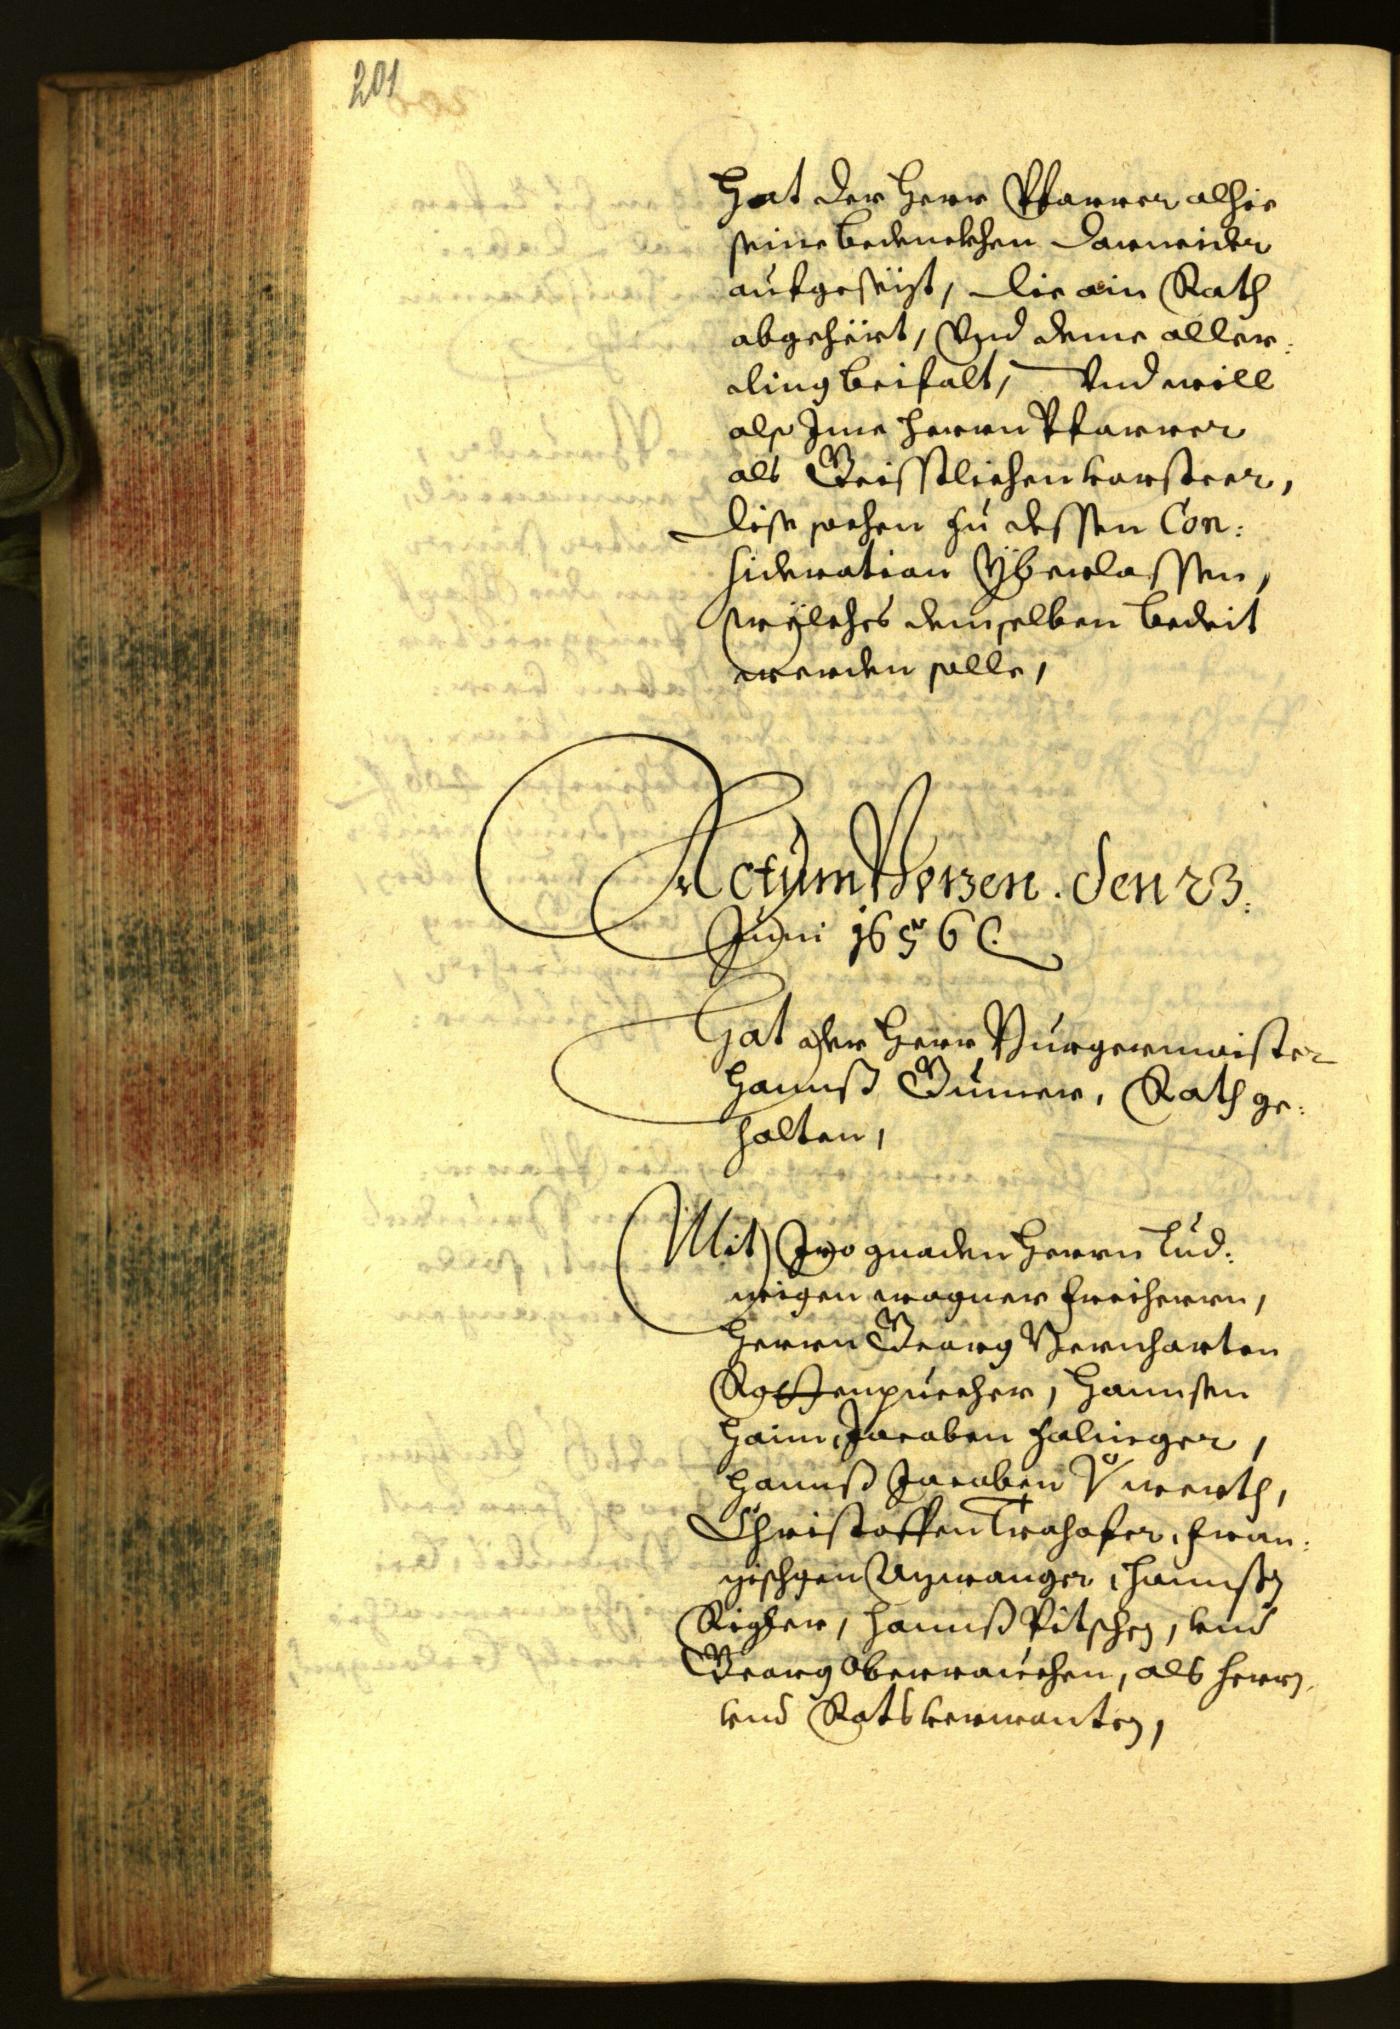 201
Hat der Herr Pfarrer alhie
seine bedenckhen darwider
aufgesezt, die ain Rath
abgehört, Vnd deme aller:
ding beifalt, Vnd will
also Ime Herrn Pfarrer
als Geisstlichen vorsteer,
dise sachen zu dessen Con:
sideration Yberlassen,
wölches demselben bedeit
werden solle,
Actum Pozen. den 23.
Juni 1656
Hat der Herr Burgermaister
Hannß Gumer, Rath ge:
halten,
Mit Iro gnaden Herrn Lud:
wigen wagner freiherrn,
Herrn Georg Bernharten
Rottenpuecher, Hannsen
Haim, Jacoben Hafneger,
Hannß Jacoben werth,
Christoffen Trohofer, fran:
zischgen Azwanger, Hannßen
Rigler, Hannß Pitschen, vnd
Georg Oberrauchen, als Herrn
vnd Ratsverwanten,